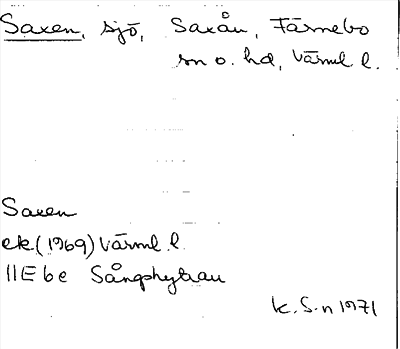 Saxen, sjö, Saxån, Färnebo
sn o. hd, Värml l.
Saxen
ek (1969) Värml. l.
11E6e Sångshyttan
K. S-n 1971